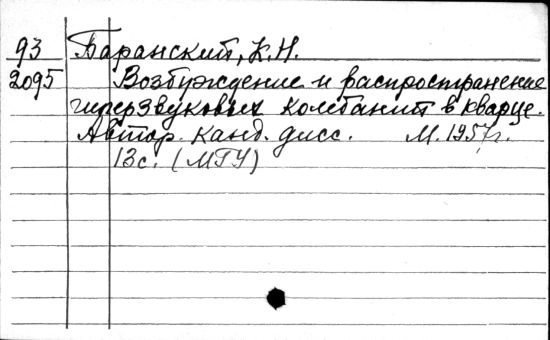 93 Баранский, К.Н.
2095 Возбуждение и распространение
гиперзвуковых колебаний в кварце.
Автор. канд. дисс. М. 1957г.
13с. (МГУ)